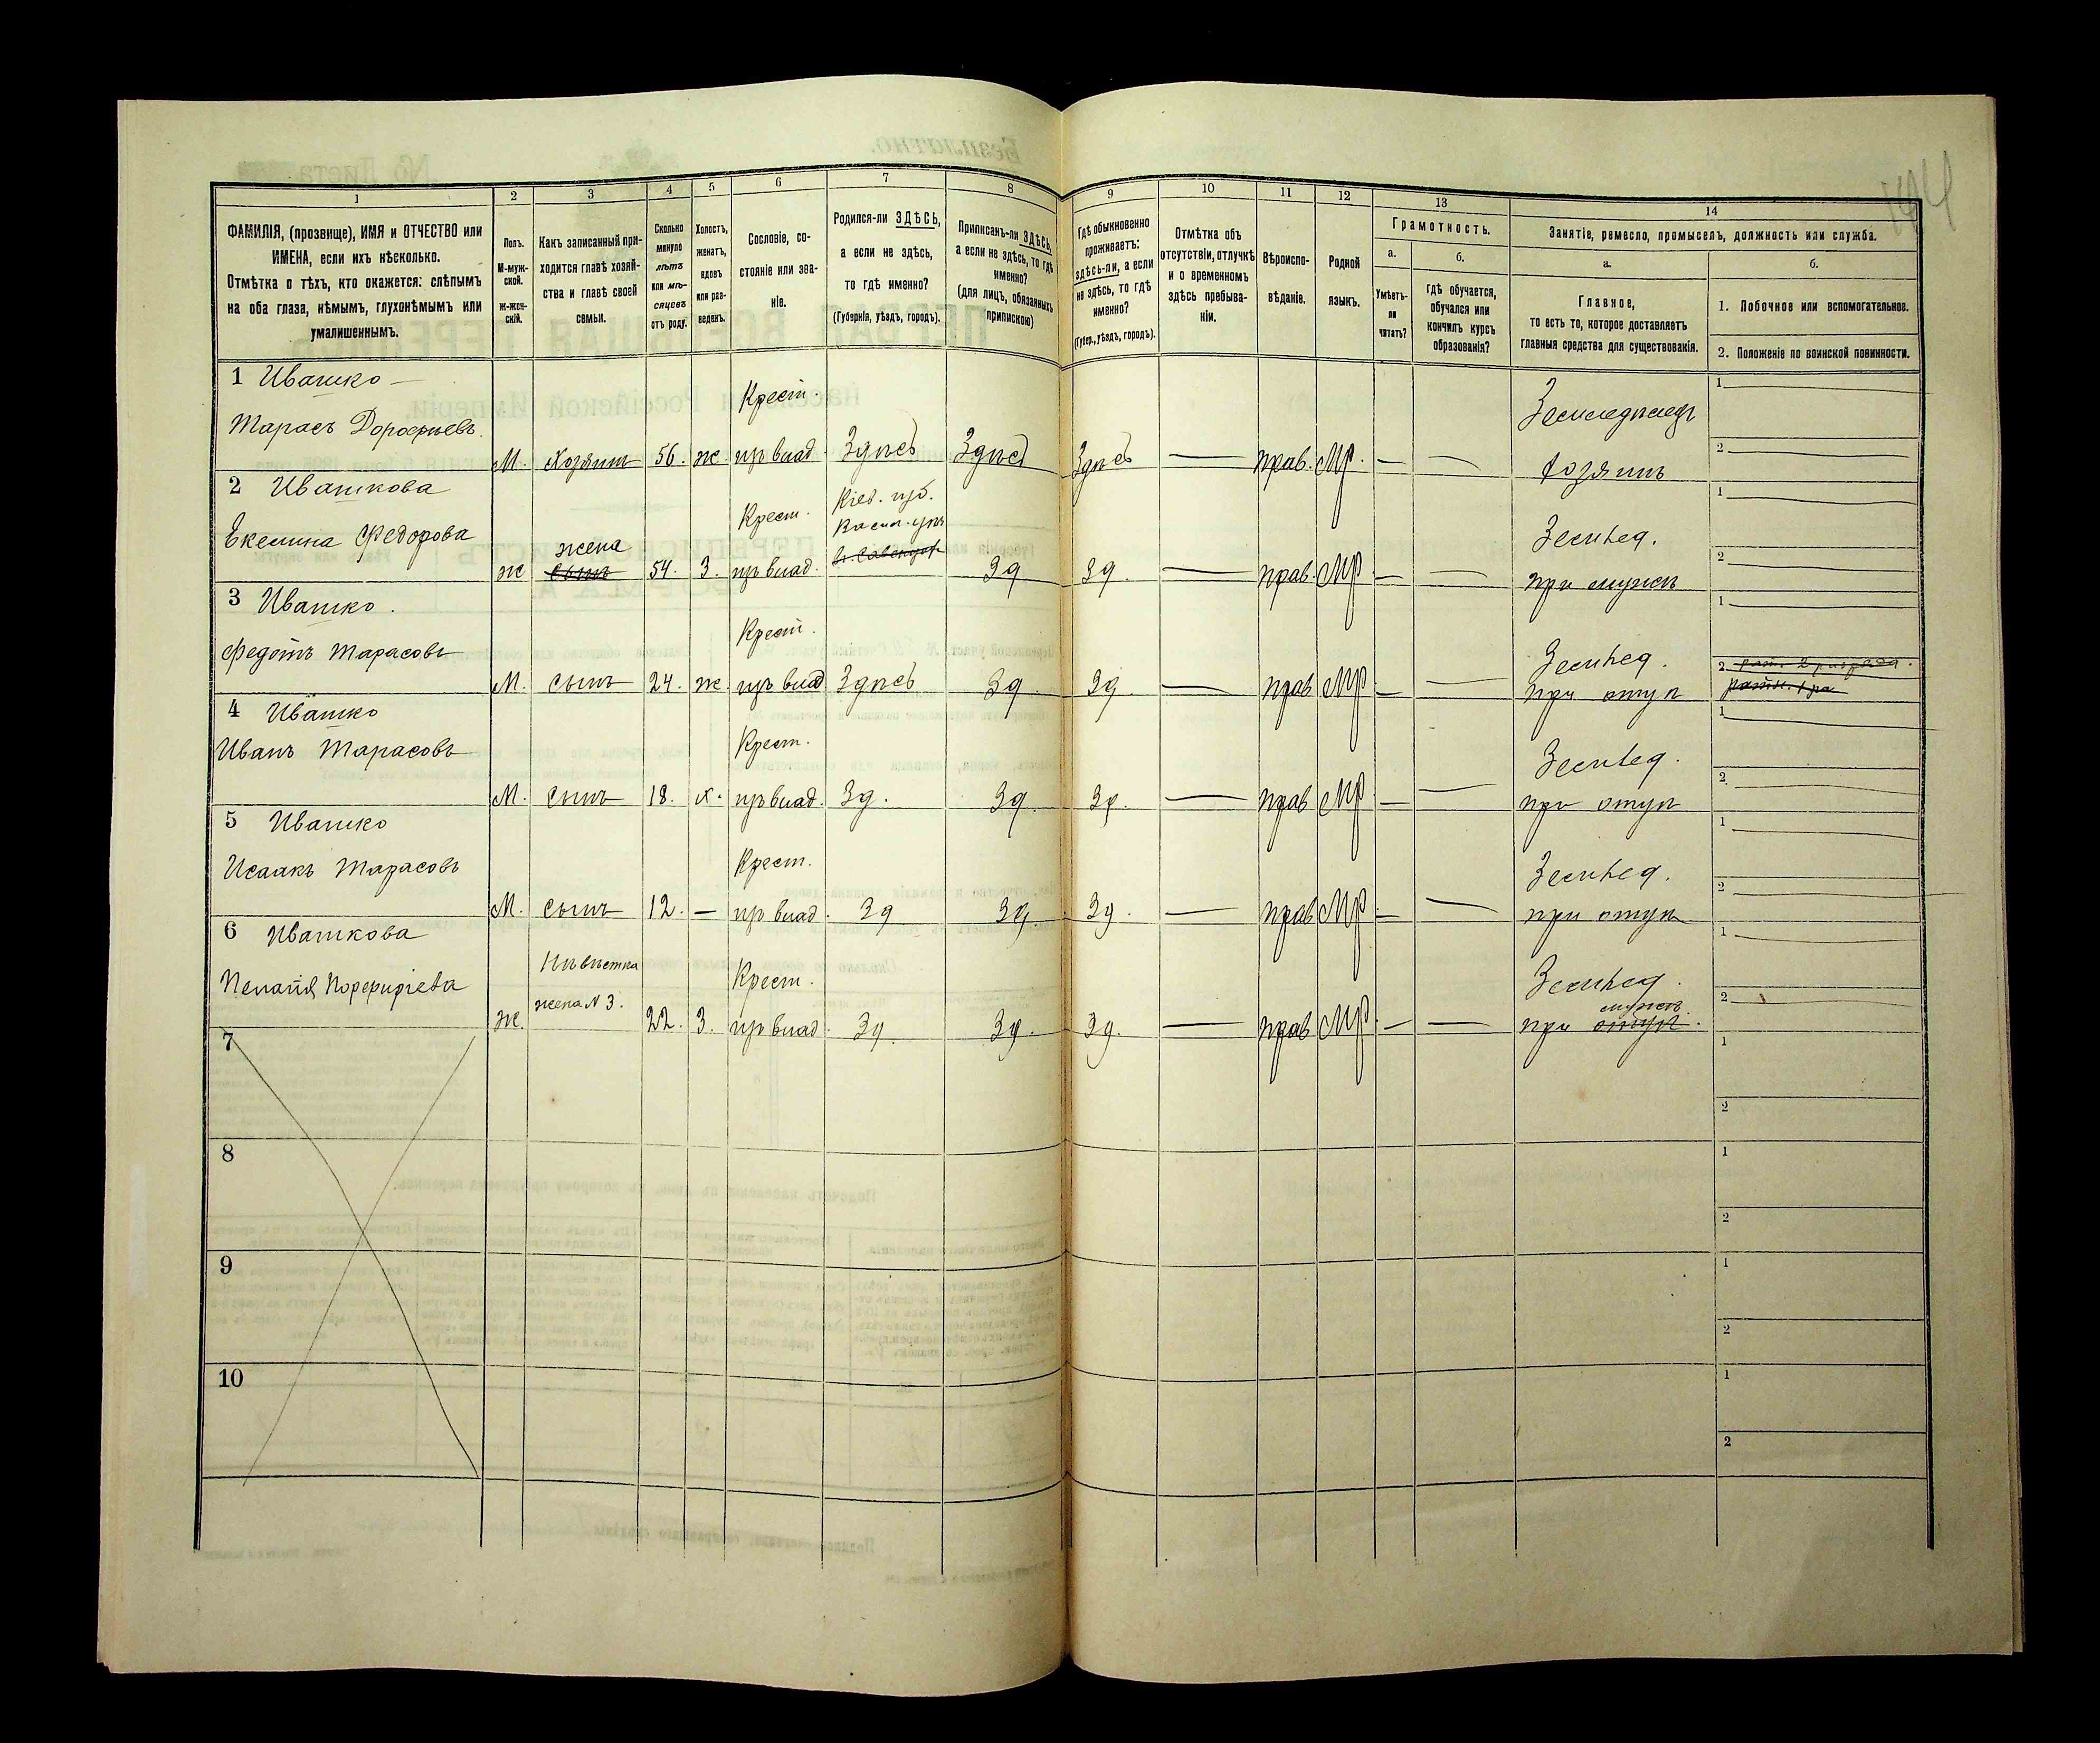 1 2 3 4 5 6 7 8 9 10 11 12 13 14
ФАМИЛІЯ, (прозвище), ИМЯ и ОТЧЕСТВО или
ИМЕНА, если ихъ нѣсколько.
Отмѣтка о тѣхъ, кто окажется: слѣпымъ
на оба глаза, нѣмымъ, глухонѣмымъ или
умалишеннымъ.
Полъ.
М-муж-
ской.
Ж-жен-
скій.
Какъ записанный при-
ходится главѣ хозяй-
ства и главѣ своей
семьи.
Сколько
минуло
лѣтъ
или мѣ-
сяцевъ
отъ роду.
Холостъ,
женатъ,
вдовъ
или раз-
веденъ.
Сословіе, со-
стояніе или зва-
ніе.
Родился-ли ЗДѢСЬ,
а если не здѣсь,
то гдѣ именно?
(Губернія, уѣздъ, городъ).
Приписанъ-ли ЗДѢСЬ,
а если не здѣсь, то гдѣ
именно?
(для лицъ, обязанныхъ
припискою)
Гдѣ обыкновенно
проживаетъ:
здѣсь-ли, а если
не здѣсь, то гдѣ
именно?
(Губер., уѣздъ, городъ).
Отмѣтка объ
отсутствіи, отлучкѣ
и о временномъ
здѣсь пребыва-
ніи.
Вѣроиспо-
вѣданіе.
Родной
языкъ.
Грамотность.
а.
Умѣетъ-
ли
читать?
б.
Гдѣ обучается,
обучался или
кончилъ курсъ
образованія?
Занятіе, ремесло, промыселъ, должность или служба.
а.
Главное,
то есть то, которое доставляетъ
главныя средства для существованія.
б.
1. Побочное или вспомогательное.
2. Положеніе по воинской повинности.
1 Ивашко
Тарасъ Дорофѣевъ.
М. Хозяинъ 56. ж.
Крест.
пр влад. Здѣсь Здѣсь Здѣсь — прав. Мр. — —
Земледѣлецъ
хозяинъ
1
2
2 Ивашкова
Екемина Федорова
ж
жена
сынъ
54. з.
Крест.
пр влад.
Кіев. губ.
Васил. уѣз
Зд Зд. — прав. Мр — —
Землед.
при мужѣ
1
2
3 Ивашко.
Федотъ Тарасовъ
М. сынъ 24. ж
Крест.
пр влад Здѣсь Зд. Зд. — прав Мр — —
Землед.
при отцѣ
1
2 рат. 2 разряда.
ратн. 1 ра
4 Ивашко
Иванъ Тарасовъ
М. сынъ 18. х.
Крест.
пр влад. Зд. Зд. Зд. — прав Мр — —
Землед.
при отцѣ
1
2
5 Ивашко
Исаакъ Тарасовъ
М. сынъ 12. —
Крест.
пр влад. Зд Зд. Зд. — прав Мр — —
Землед.
при отцѣ
1
2
6 Ивашкова
Пелагія Порфиріева
ж.
Невѣстка
жена N 3.
22. з.
Крест.
пр влад. Зд. Зд. Зд. — прав Мр. — —
Землед.
мужѣ
при отцѣ.
1
2
7
1
2
8
1
2
9
1
2
10
1
2